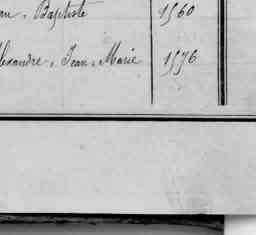 Baptiste 1560
lexandre, Jean, Marie 1576